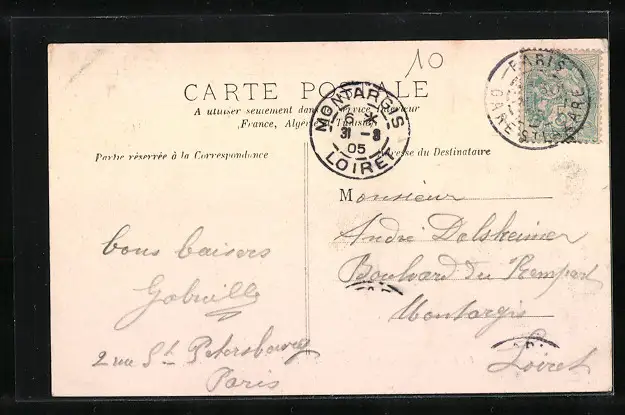 10
CARTE POSTALE
A utiliser seulement dans le Service Intérieur
France, Algérie, Tunisie
Partie réservée à la Correspondance
Adresse du Destinataire
MONTARGES
31 - 8
05
LOIRET
PARIS
GARE ST LAZARE
bons baisers
Gabrielle
2 rue St Petersbourg
Paris
Monsieur
André Delsheimer
Boulvard du Rempart
Montargis
Loiret